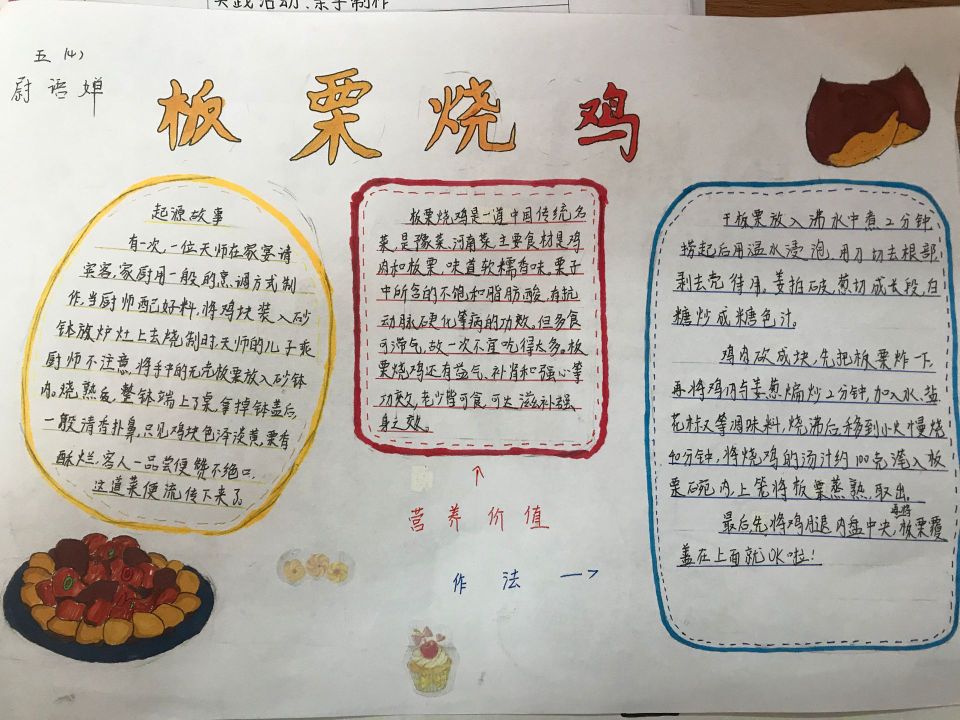 实践活动:亲子制作
五(4)
尉语婵
板栗烧鸡
起源故事
有一次,一位天师在家宴请
宾客,家厨用一般的烹调方式制
作,当厨师配好料,将鸡块装入砂
钵放炉灶上去烧制时,天师的儿子乘
厨师不注意,将手中的无壳板栗放入砂钵
内。烧熟后,整钵端上了桌,拿掉钵盖后,
一般清香扑鼻,只见鸡块色泽淡黄,栗肴
酥烂,客人一品尝便赞不绝口。
这道菜便流传下来了
板栗烧鸡是一道中国传统名
菜,是豫菜、河南菜,主要食材是鸡
肉和板栗,味道软糯香味。栗子
中所含的不饱和脂肪酸,有抗
动脉硬化等病的功效,但多食
可滞气,故一次不宜吃得太多。板
栗烧鸡还有益气、补肾和强心等
功效,老少皆可食,可达滋补强
身之效。
↑
营养价值
作法→
干板栗放入沸水中煮2分钟,
捞起后用温水浸泡,用刀切去根部,
剥去壳待用。姜拍破,葱切成长段,白
糖炒成糖色汁。
鸡肉砍成块,先把板栗炸一下,
再将鸡肉与姜葱煸炒2分钟,加入水、盐
花椒、等调味料,烧沸后,移到小火慢烧
40分钟,将烧鸡的汤汁约100克滗入板
栗碗内,上笼将板栗蒸熟,取出。
最后先将鸡腿肉盘中央,再将板栗覆
盖在上面就OK啦!